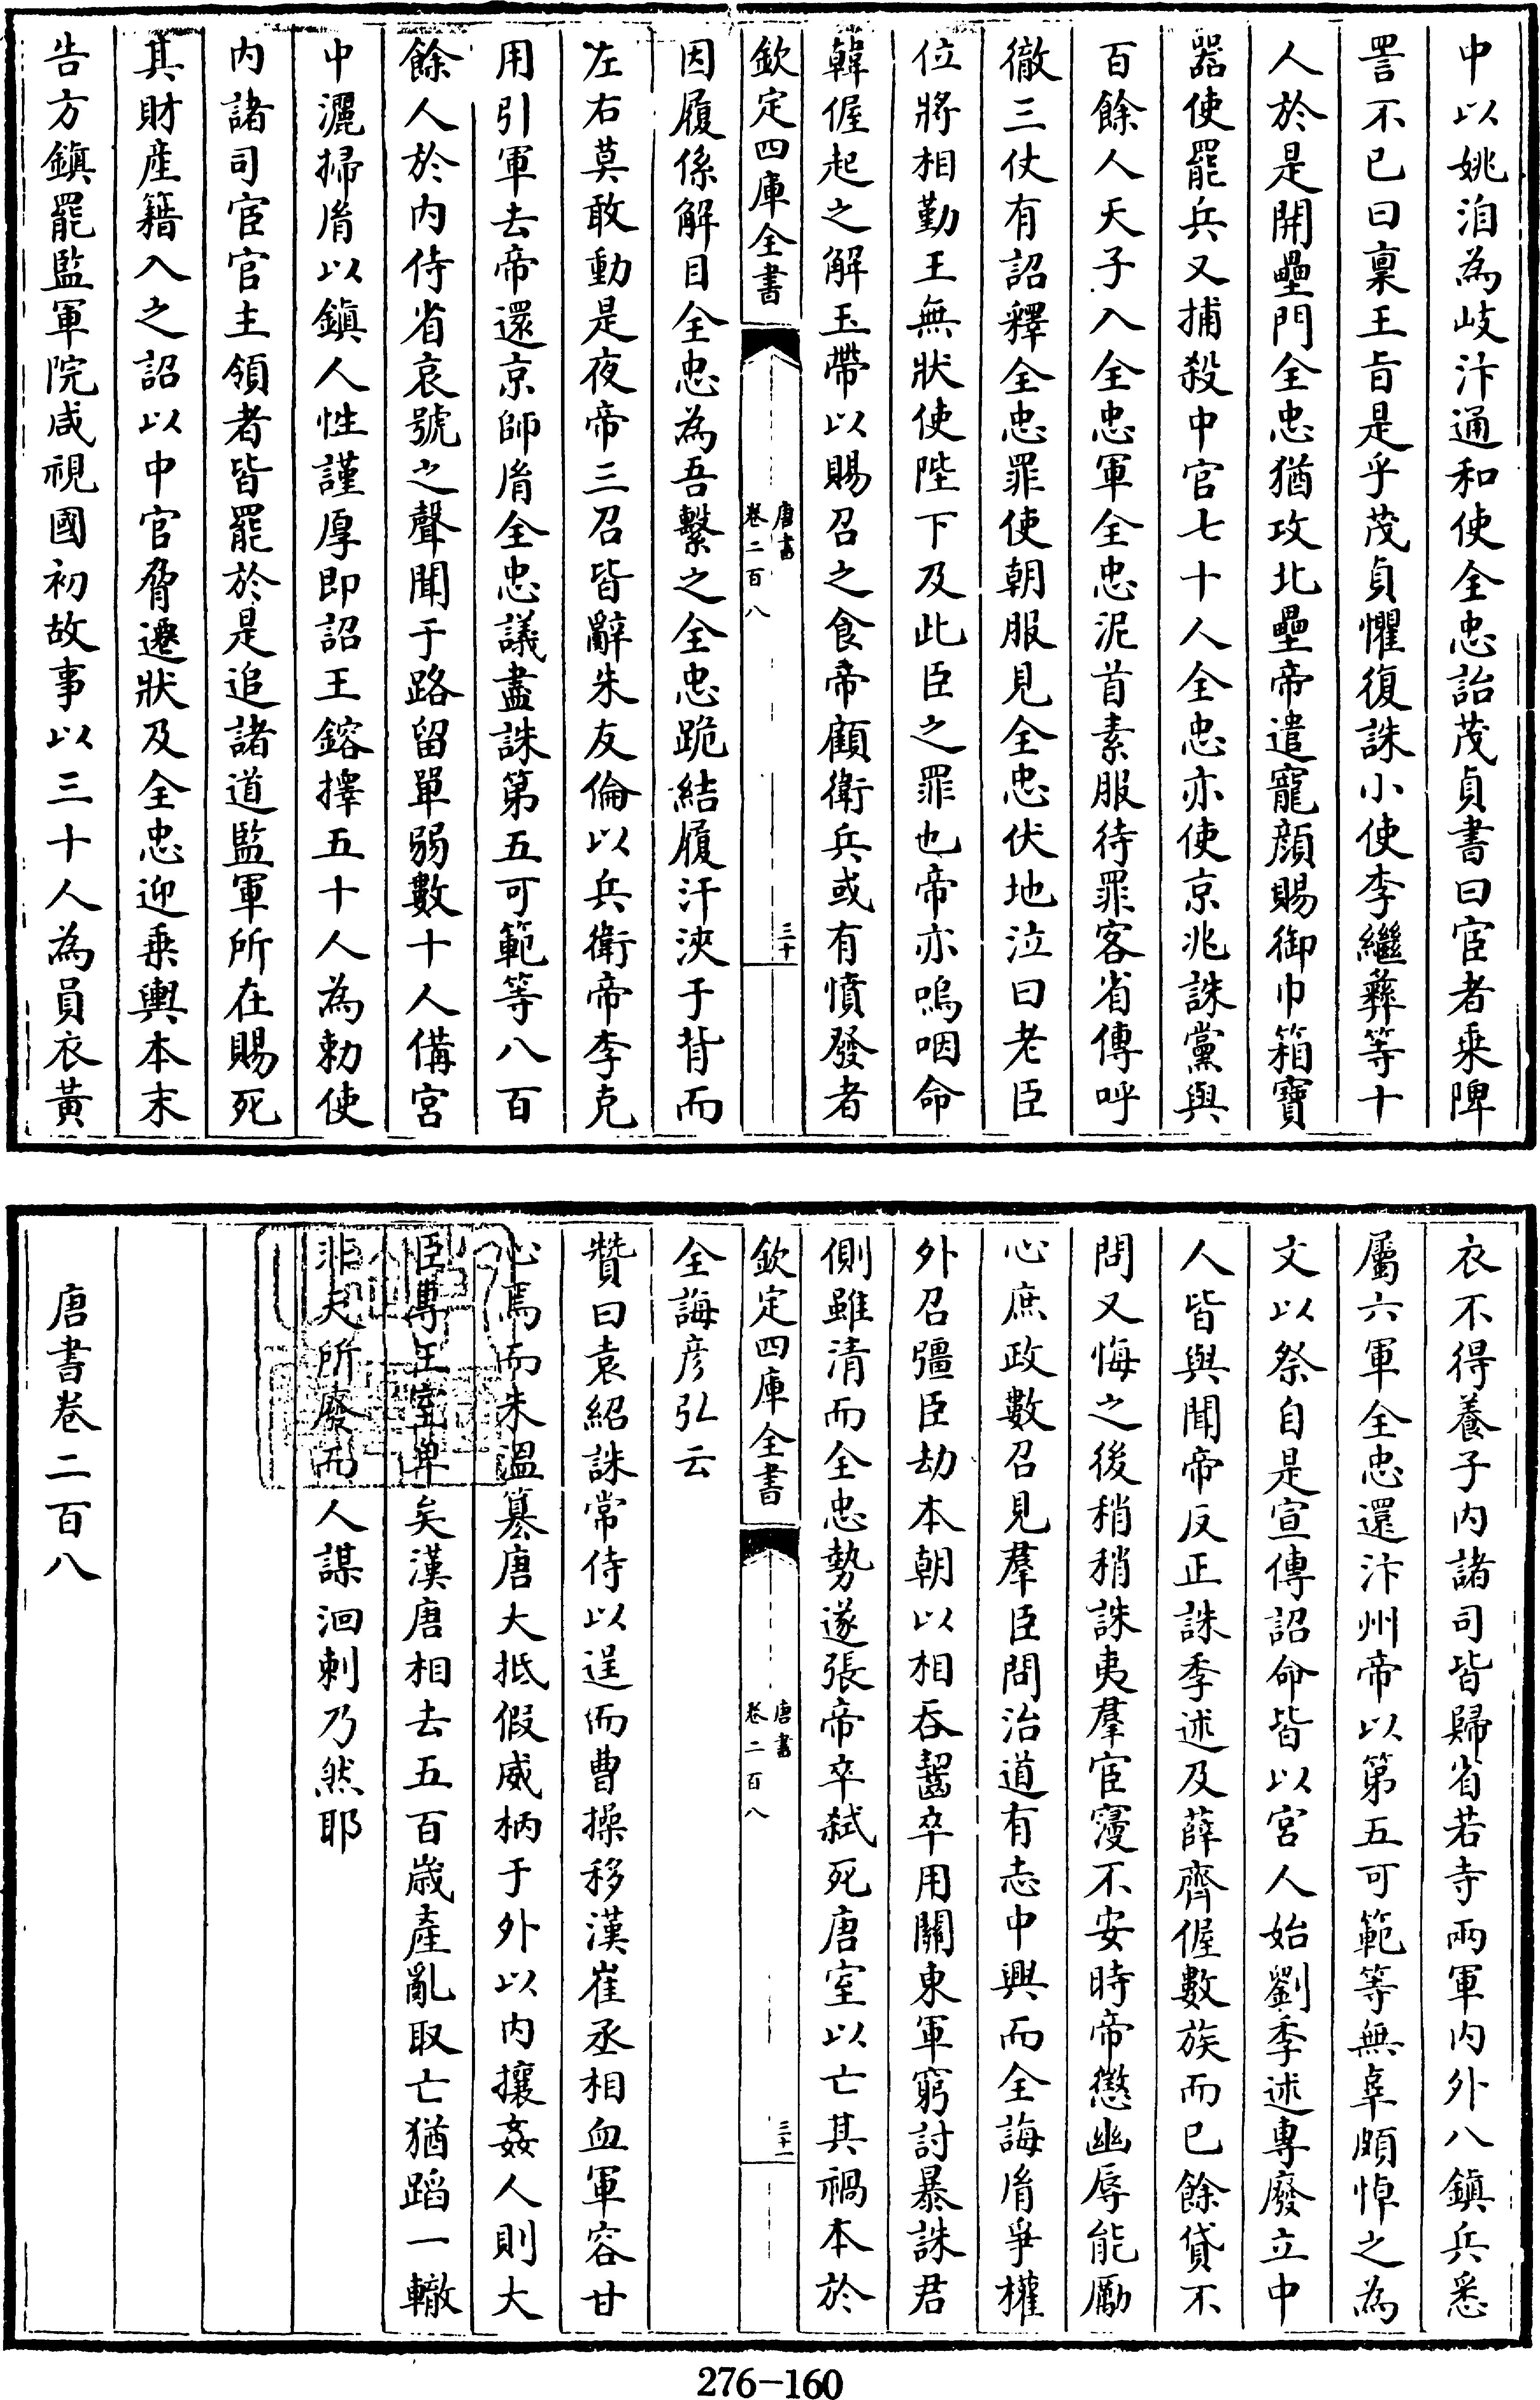 中以姚洎為岐汴通和使全忠詒茂貞書曰宦者乘陴
詈不已曰稟王旨是乎茂貞懼復誅小使李繼彝等十
人於是開壘門全忠猶攻北壘帝遣寵顏賜御巾箱寶
器使罷兵又捕殺中官七十人全忠亦使京兆誅黨與
百餘人天子入全忠軍全忠泥首素服待罪客省傳呼
徹三仗有詔釋全忠罪使朝服見全忠伏地泣曰老臣
位將相勤王無狀使陛下及此臣之罪也帝亦嗚咽命
韓偓起之解玉帶以賜召之食帝顧衛兵或有憤發者
欽定四庫全書
唐書
卷二百八
三十
因履係解目全忠為吾繫之全忠跪結履汗浹于背而
左右莫敢動是夜帝三召皆辭朱友倫以兵衛帝李克
用引軍去帝還京師胤全忠議盡誅第五可範等八百
餘人於內侍省哀號之聲聞于路留單弱數十人備宮
中灑掃胤以鎮人性謹厚即詔王鎔擇五十人為勅使
內諸司宦官主領者皆罷於是追諸道監軍所在賜死
其財產籍入之詔以中官脅遷狀及全忠迎乘輿本末
告方鎮罷監軍院咸視國初故事以三十人為員衣黃
衣不得養子內諸司皆歸省若寺兩軍內外八鎮兵悉
屬六軍全忠還汴州帝以第五可範等無辜頗悼之為
文以祭自是宣傳詔命皆以宮人始劉季述專廢立中
人皆與聞帝反正誅季述及薛齊偓數族而已餘貸不
問又悔之後稍稍誅夷羣宦寖不安時帝懲幽辱能勵
心庶政數召見羣臣問治道有志中興而全誨胤爭權
外召彊臣劫本朝以相吞齧卒用關東軍窮討暴誅君
側雖清而全忠勢遂張帝卒弒死唐室以亡其禍本於
欽定四庫全書
唐書
卷二百八
三十一
全誨彥弘云
贊曰袁紹誅常侍以逞而曹操移漢崔丞相血軍容甘
心焉而朱溫篡唐大抵假威柄于外以內攘姦人則大
臣專王室卑矣漢唐相去五百歲產亂取亡猶蹈一轍
非天所廢而人謀洄刺乃然耶
唐書卷二百八
276-160